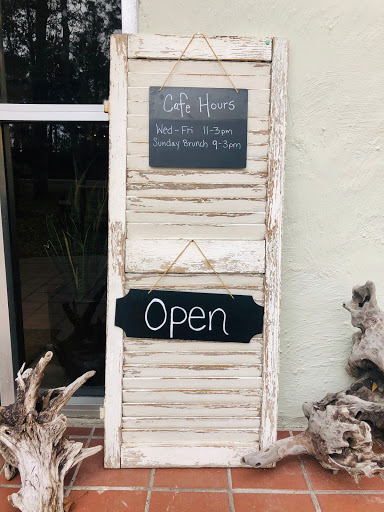 Cafe Hours
Wed-Fri 11-3pm
Sunday Brunch 9-3pm
Open